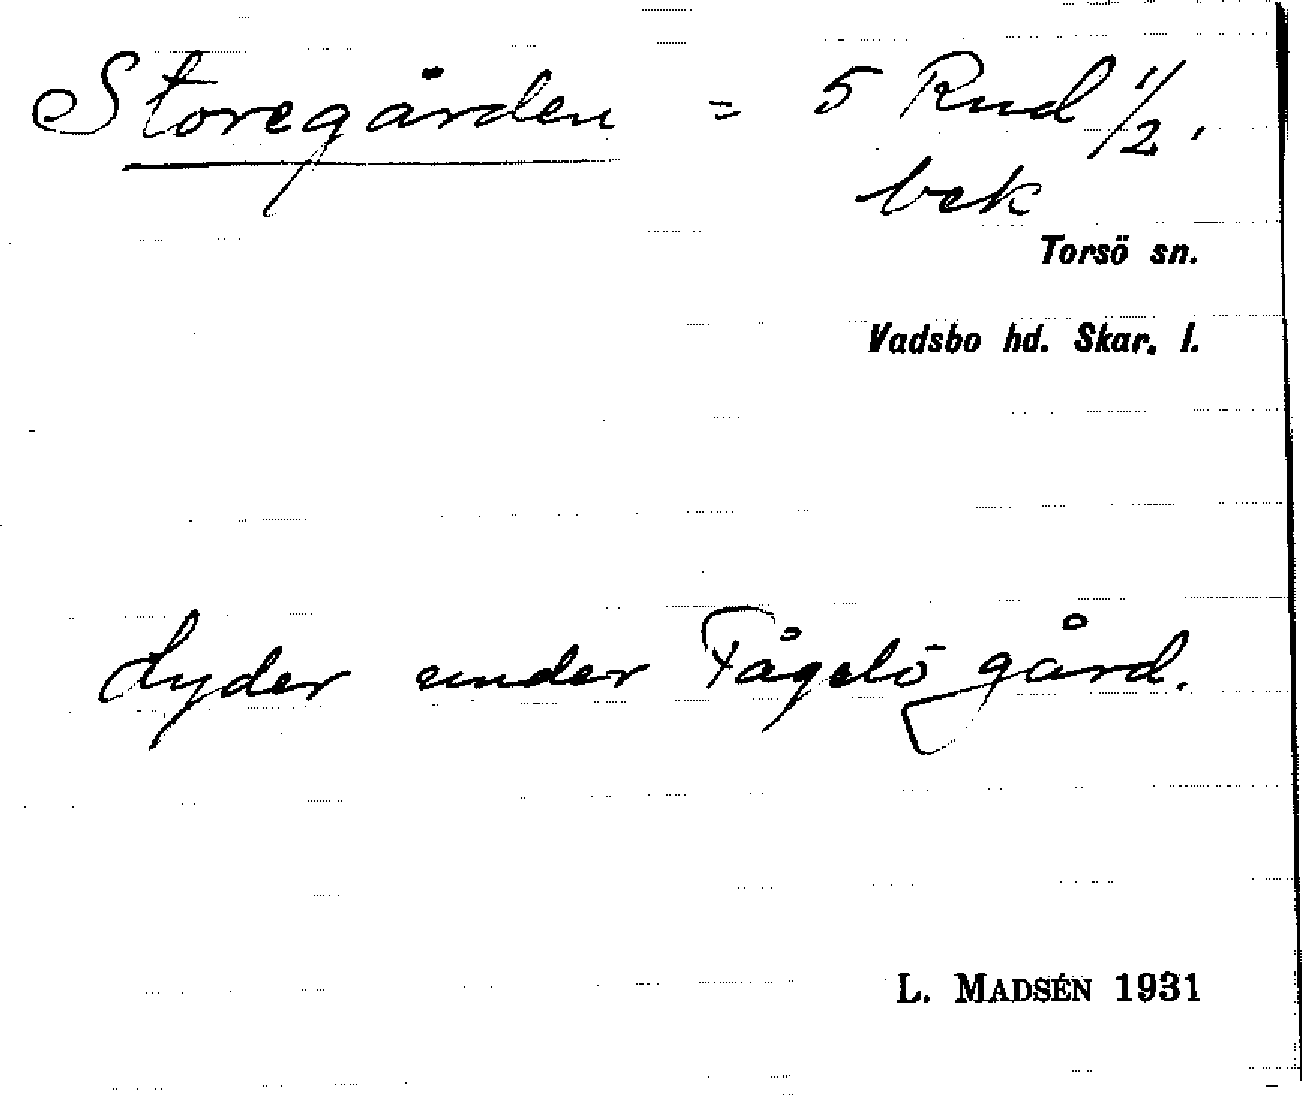 Storegården = 5 Rud 1/2.
bek
Torsö sn.
Vadsbo hd. Skar. l.
Lyder under Fågelö gård.
L. MADSÉN 1931